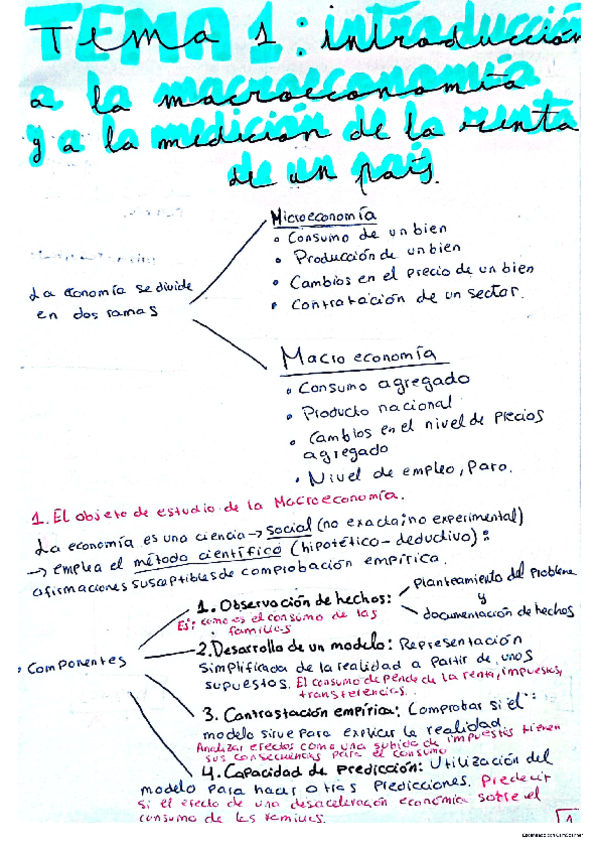 Tema 1: introducción
a la macroeconomía
y a la medición de la renta
de un país.
Microeconomía
• Consumo de un bien
• Producción de un bien
• Cambios en el precio de un bien
• Contratación de un sector.
La economía se divide
en dos ramas
Macro economía
• Consumo agregado
• Producto nacional
• Cambios en el nivel de precios
agregado
• Nivel de empleo, Paro.
1. El objeto de estudio de la Macroeconomía.
La economía es una ciencia → social (no exacta; no experimental)
→ emplea el método científico (hipotético-deductivo):
afirmaciones susceptibles de comprobación empírica.
• Componentes
1. Observación de hechos:
Ej: como es el consumo de las
familias
Planteamiento del problema
y
documentación de hechos
2. Desarrollo de un modelo: Representación
simplificada de la realidad a partir de unos
supuestos. El consumo depende de la renta, impuestos,
transferencias.
3. Contrastación empírica: Comprobar si el
modelo sirve para explicar la realidad
Analizar efectos como una subida de impuestos tienen
sus consecuencias para el consumo
4. Capacidad de Predicción: Utilización del
modelo para hacer otras predicciones. Predecir
si el efecto de una desaceleración económica sobre el
consumo de las familias.
1